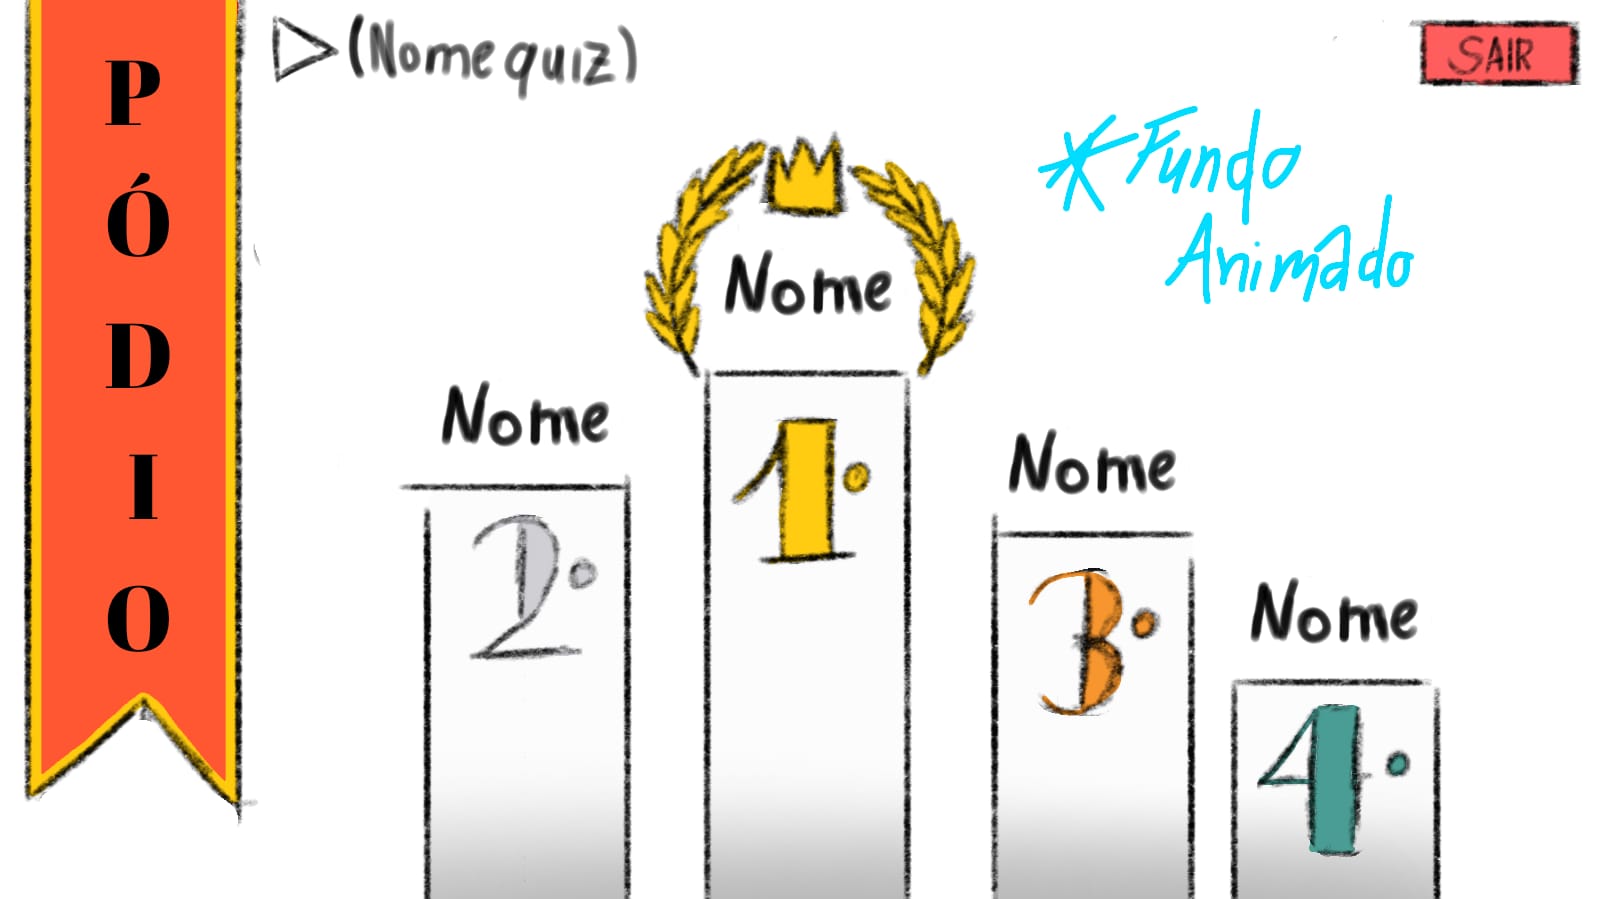 PÓDIO
(Nome quiz)
SAIR
*Fundo
Animado
Nome
1º
Nome
2º
Nome
3º
Nome
4º